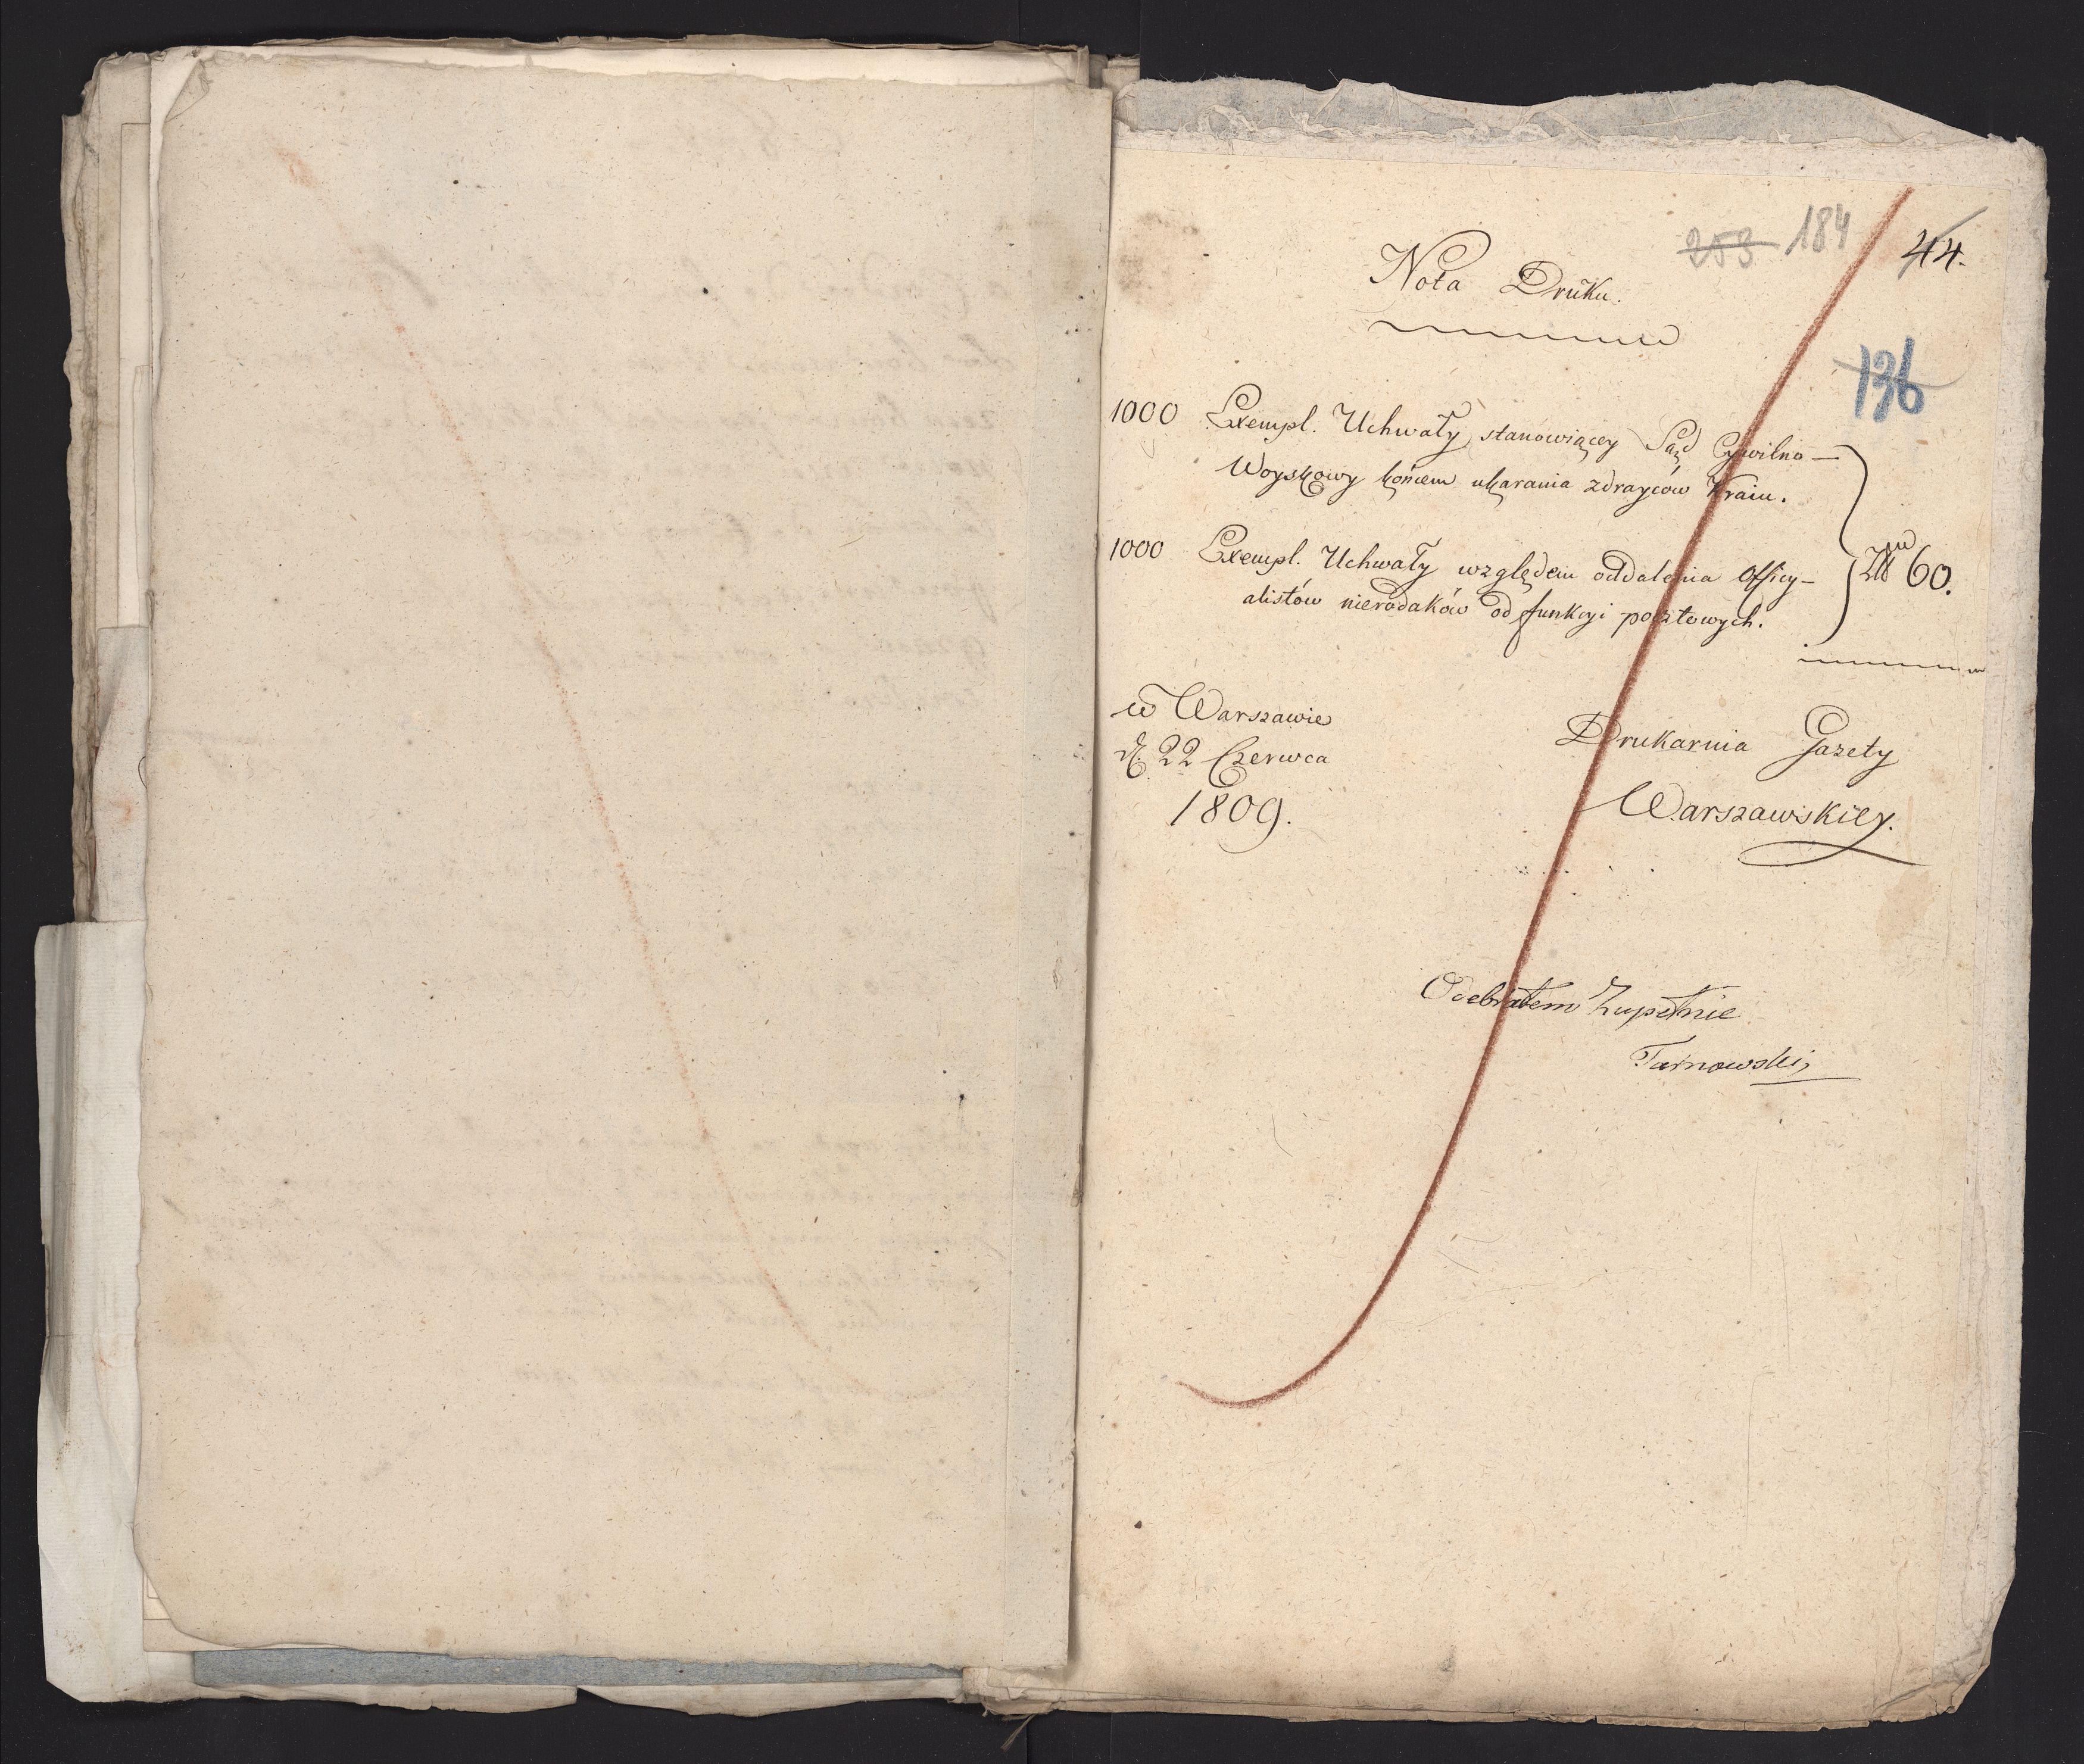 253 184 44.
Nota Druku.
136
1000 Exempl. Uchwały stanowiącey Sąd Cywilno-
Woyskowy końcem ukarania zdrayców Kraiu.
1000 Exempl. Uchwały względem oddalenia Officy-
alistów nierodaków od funkcyi pocztowych.
60.
w Warszawie
d. 22 Czerwca
1809.
Drukarnia Gazety
Warszawskiey.
Odebrałem Zupełnie
Tarnowski